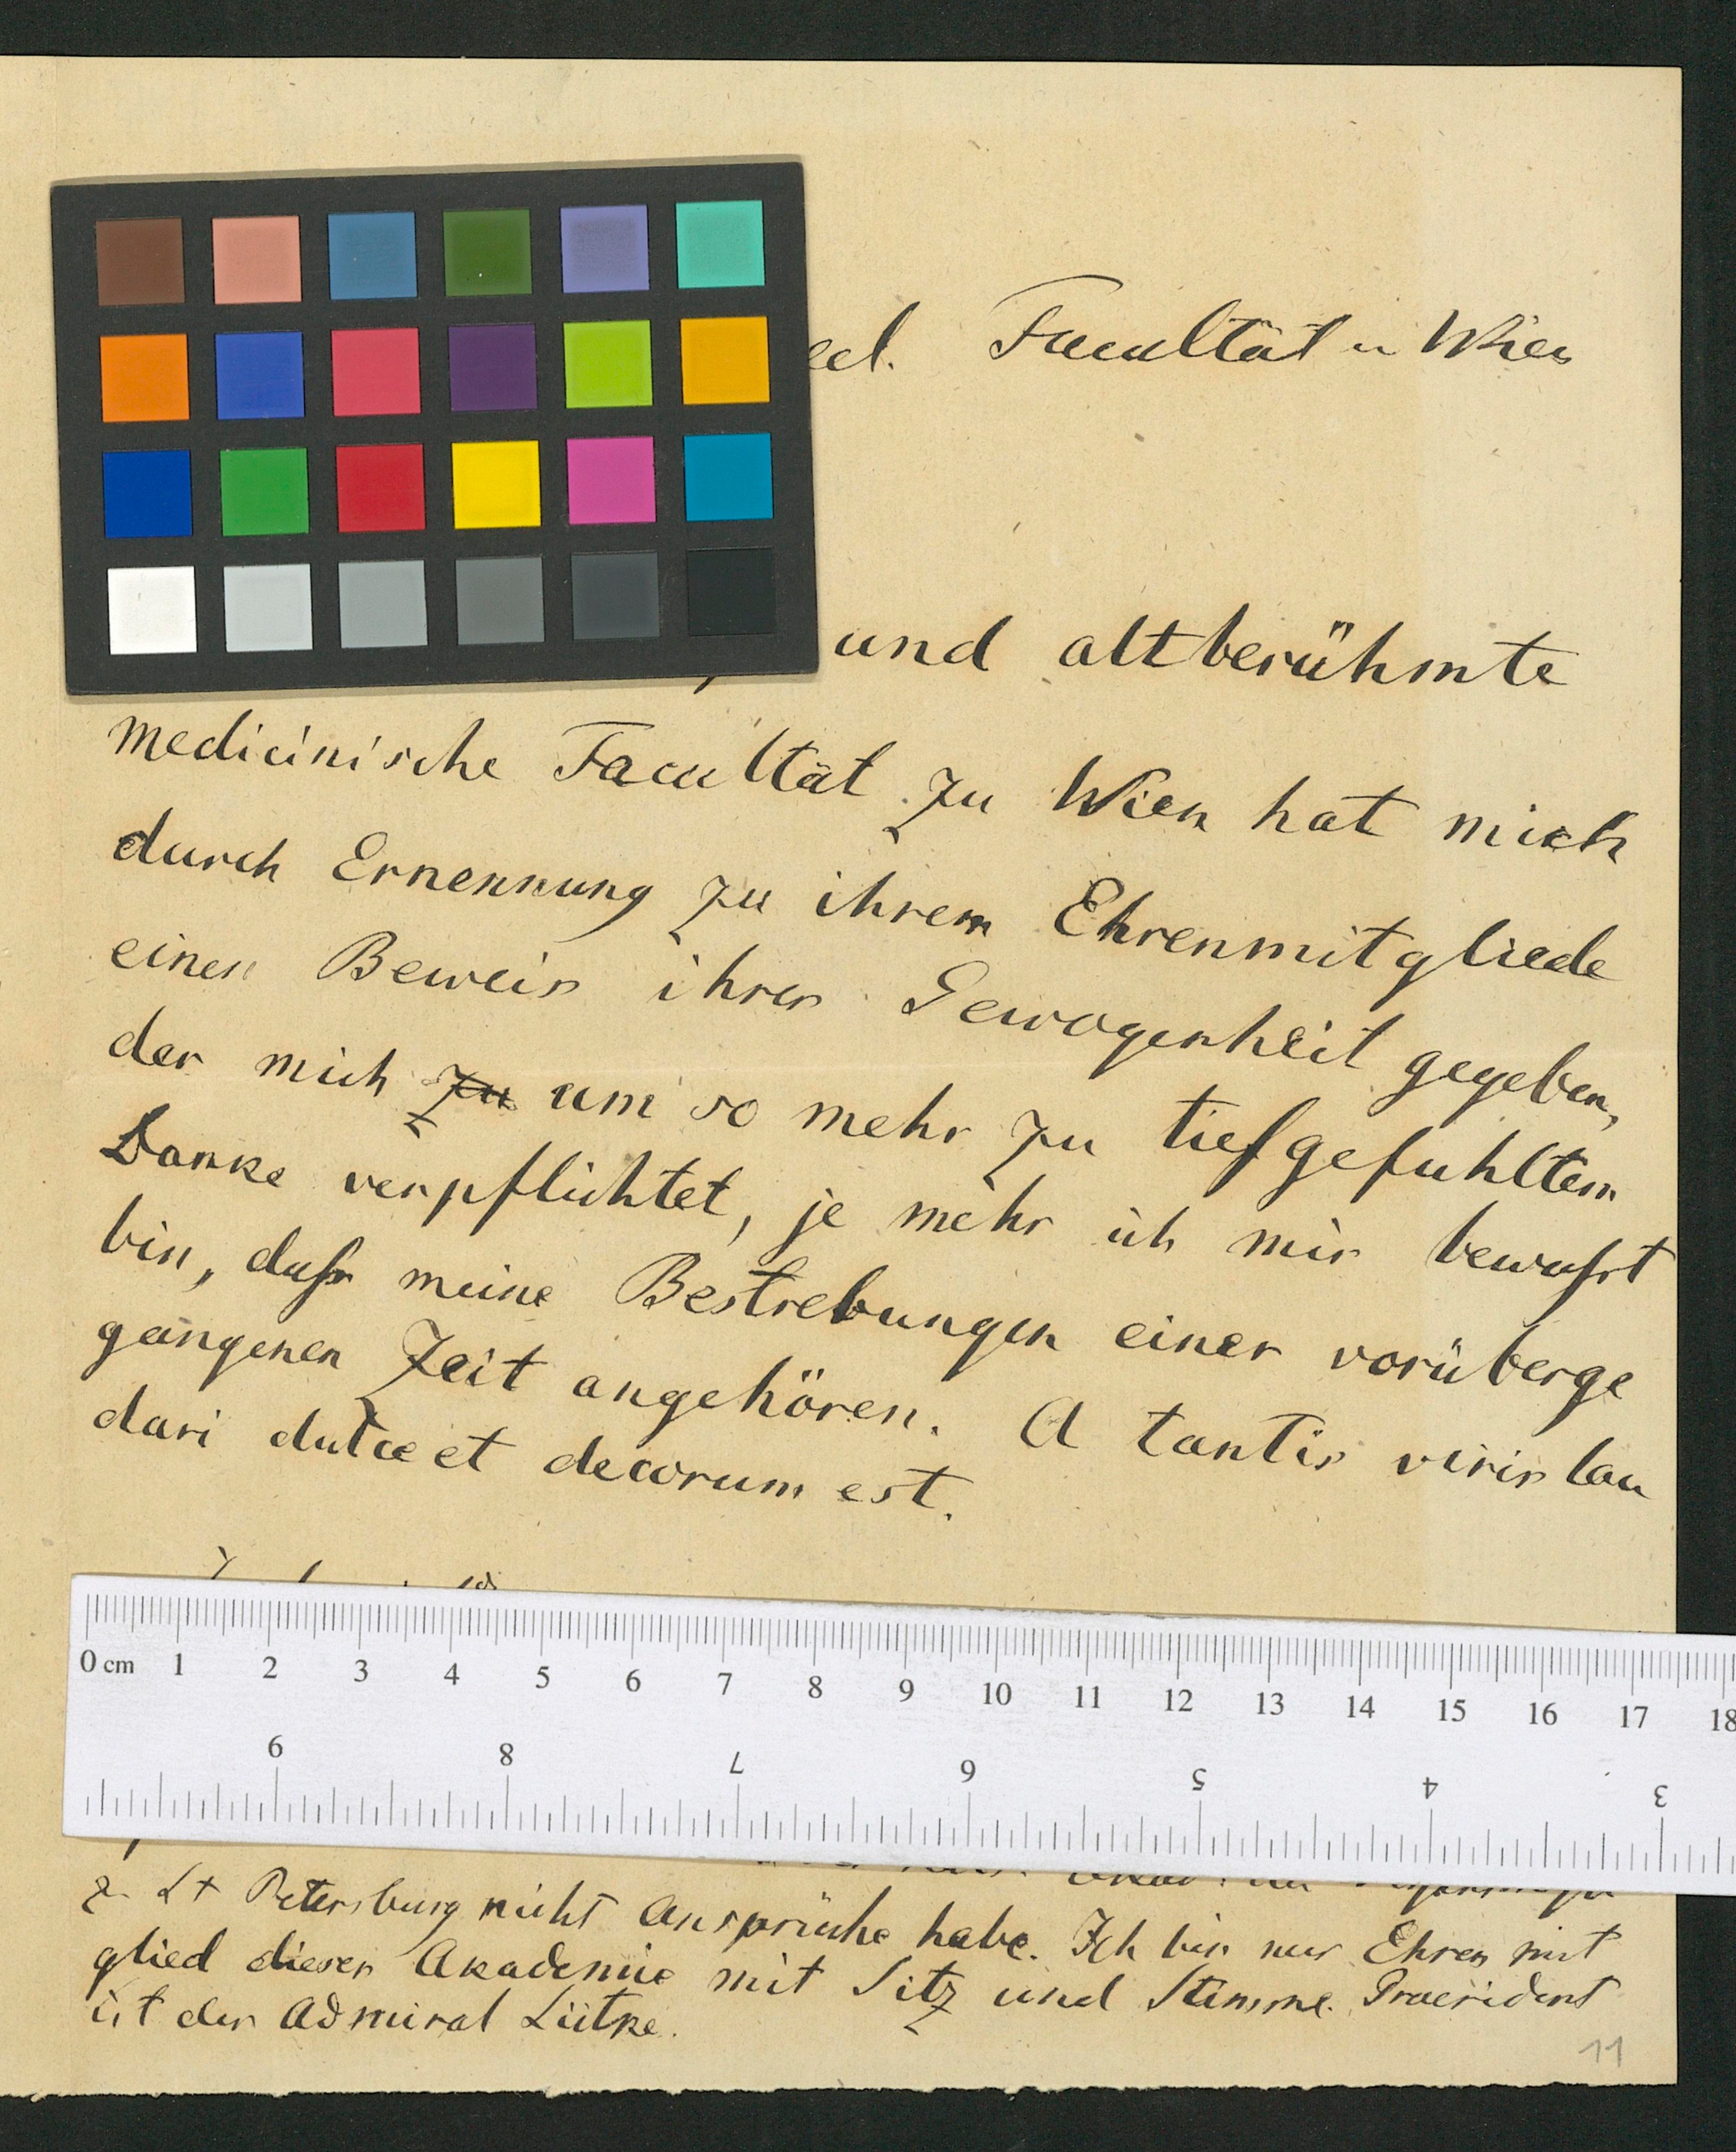 Facultät in Wien
und altberühmte
medicinische Facultät zu Wien hat mich
durch Ernennung zu ihrem Ehrenmitgliede
einen Beweis ihrer Gewogenheit gegeben,
der mich zu um so mehr zu tiefgefuhltem
Danke verpflichtet, je mehr ich mir bewußt
bin, daß meine Bestrebungen einer vorüberge
gangenen Zeit angehören. A tantis viris lau
dari dulce et decorum est.
0 cm 1 2 3 4 5 6 7 8 9 10 11 12 13 14 15 16 17 18
9 8 7 6 5 4 3
z. St Petersburg nicht Ansprüche habe. Ich bin nur Ehren mit
glied dieser Akademie mit Sitz und Stimme. Praesident
ist der Admiral Lütke.
11